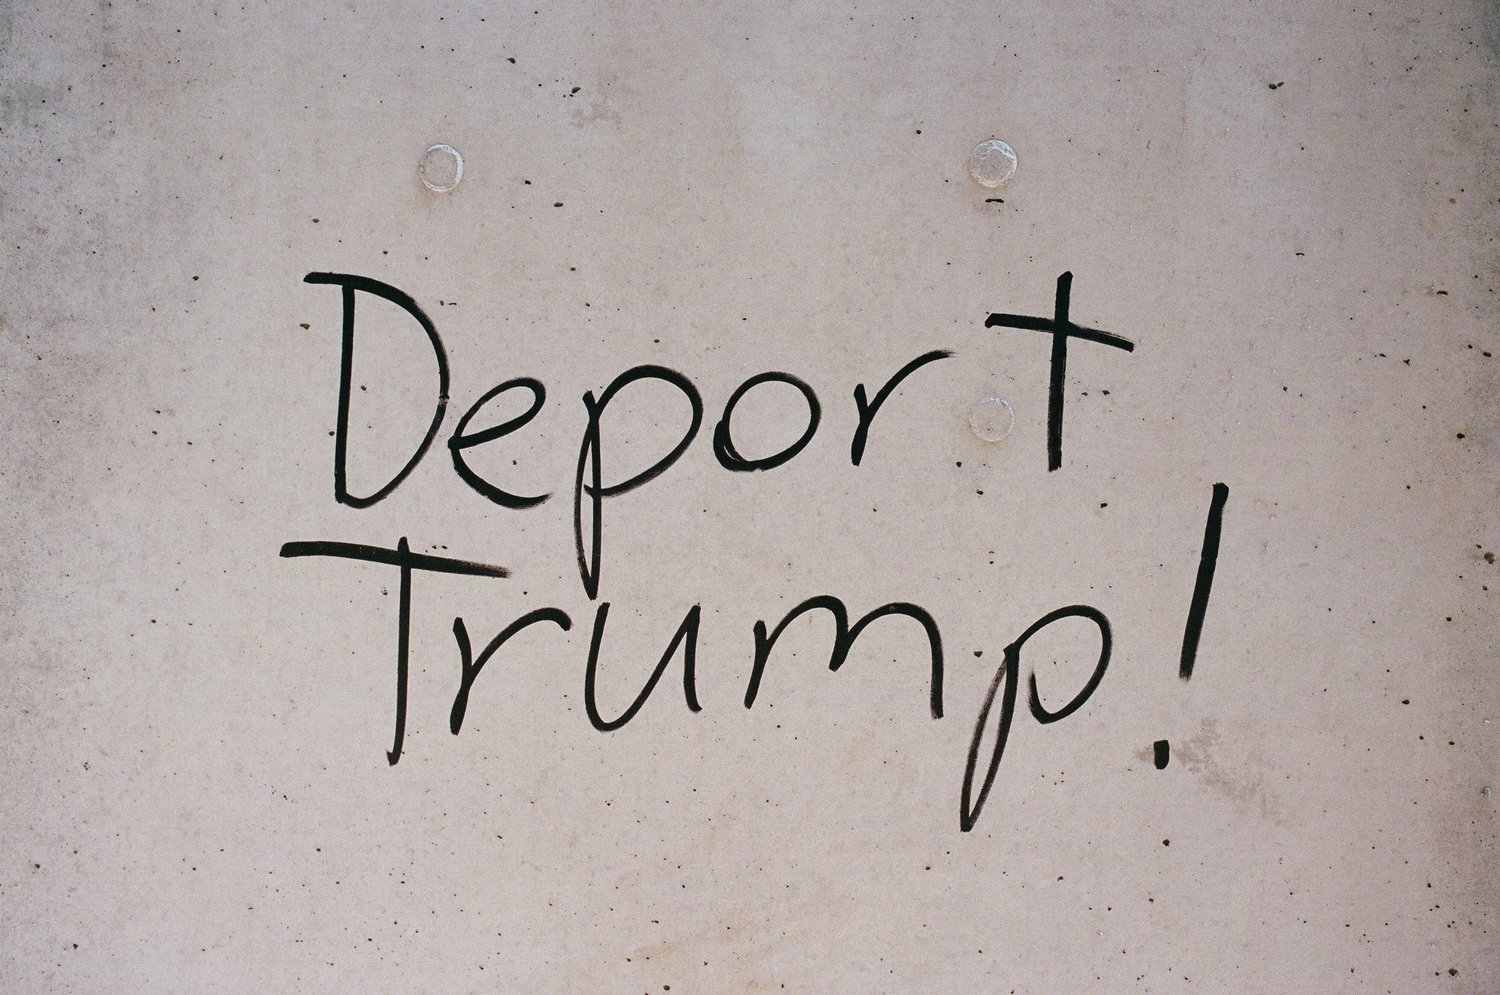 Deport
Trump!